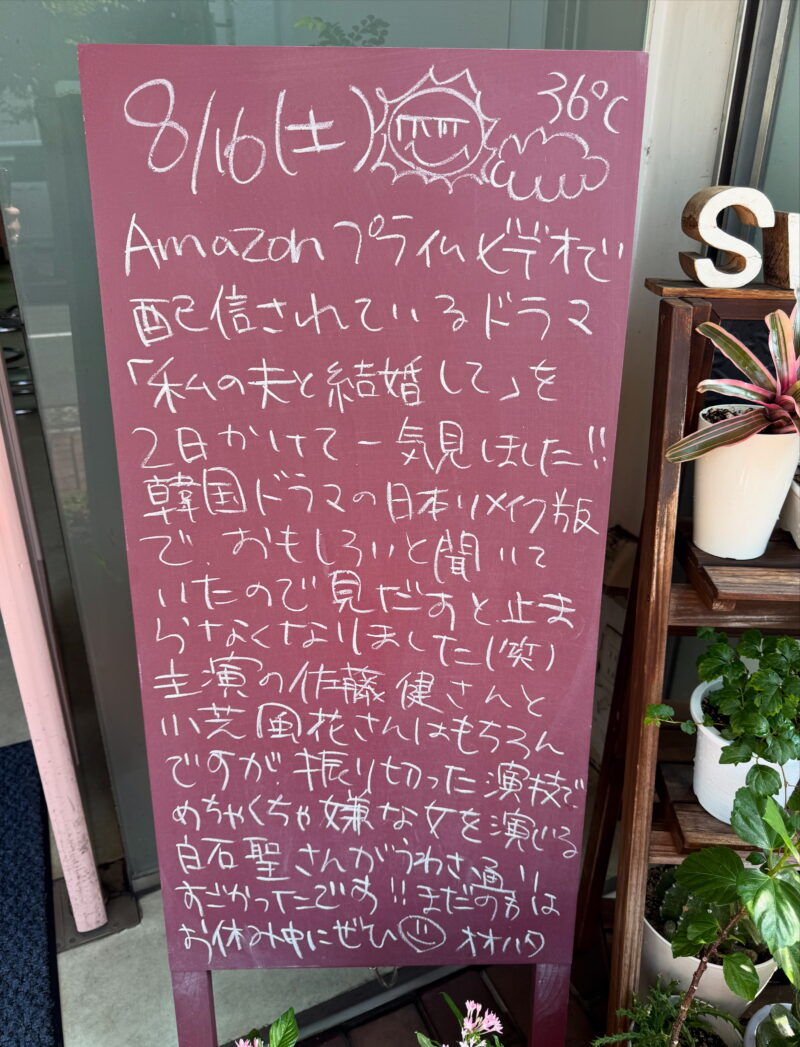 8/16(土) 36℃
Amazonプライムビデオで
配信されているドラマ
「私の夫と結婚して」を
2日かけて一気見しました!!
韓国ドラマの日本リメイク版
で、おもしろいと聞いて
いたので見だすと止ま
らなくなりました(笑)
主演の佐藤健さんと
小芝風花さんはもちろん
ですが、振り切った演技で、
めちゃくちゃ嫌な女を演じる
白石聖さんがうわさ通り
すごかったです!!まだの方は
お休み中にぜひ オオハタ
S